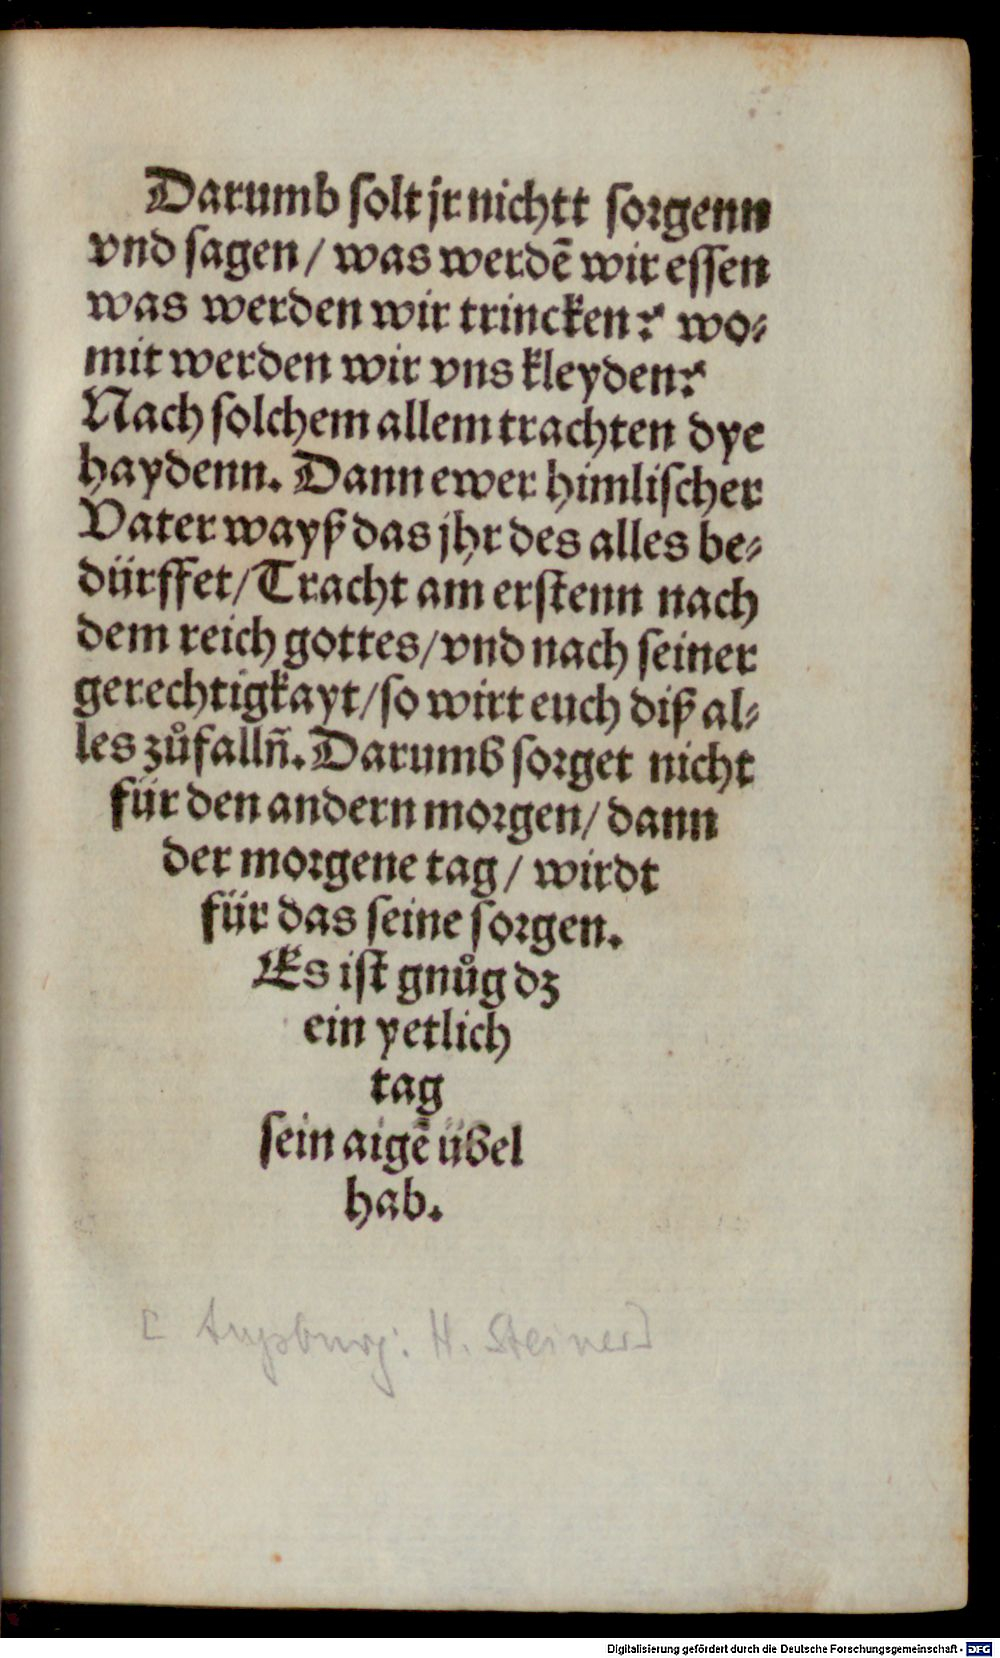 Darumb solt jr nichtt sorgenn
vnd sagen / was werdē wir essen
was werden wir trincken? wo-
mit werden wir vns kleyden?
Nach solchem allem trachten dye
haydenn. Dann ewer himlischer
Vater wayß das jhr des alles be-
dürffet / Tracht am erstenn nach
dem reich gottes / vnd nach seiner
gerechtigkayt / so wirt euch diß al-
les zůfallñ. Darumb sorget nicht
für den andern morgen / dann
der morgene tag / wirdt
für das seine sorgen.
Es ist gnůg dz
ein yetlich
tag
sein aigē übel
hab.
[ Augsburg: H. Steiner]
Digitalisierung gefördert durch die Deutsche Forschungsgemeinschaft - DFG